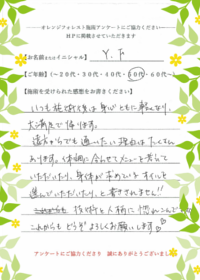 オレンジフォレスト施術アンケートにご協力ください
HPに掲載させていただきます
【お名前またはイニシャル】 Y.F
【ご年齢】(~20代・30代・40代・50代・60代~)
【施術を受けられた感想をお書きください】
いつも施術後は身心ともに軽くなり、
大満足で帰ります。
遠方からでも通いたい理由はたくさん
あります。体調に合わせてメニューを
いただいたり、身体が求めている
進んでいただいたり、と書ききれません!!
技術と人柄に惚れこんで
これからもどうぞよろしくお願いします
アンケートにご協力くださり 誠にありがとうございました